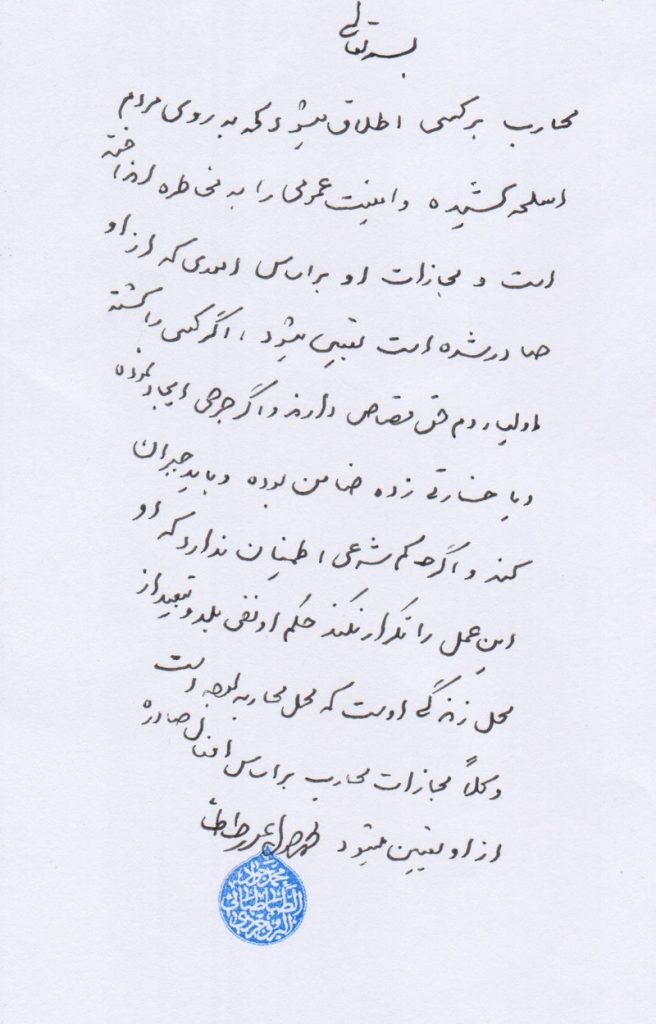 بسمه تعالی
محارب بر کسی اطلاق میشود که به روی مردم
اسلحه کشیده و امنیت عمومی را به مخاطره انداخته
است و مجازات او براساس اموری که از او
صادر شده است تعیین میشود، اگر کسی را کشته
اولیاء دم حق قصاص دارند و اگر جرحی ایجاد نموده
و یا خسارتی زده ضامن بوده و باید جبران
کند و اگر حاکم شرعی اطمینان ندارد که او
این عمل را تکرار نکند حکم او نفی بلد و تبعید از
محل زندگی اوست که محل محاربه بوده است
و کلاً مجازات محارب براساس افعال صادره
از او تعیین میشود
محمد جواد
الطباطبائی
البروجردی